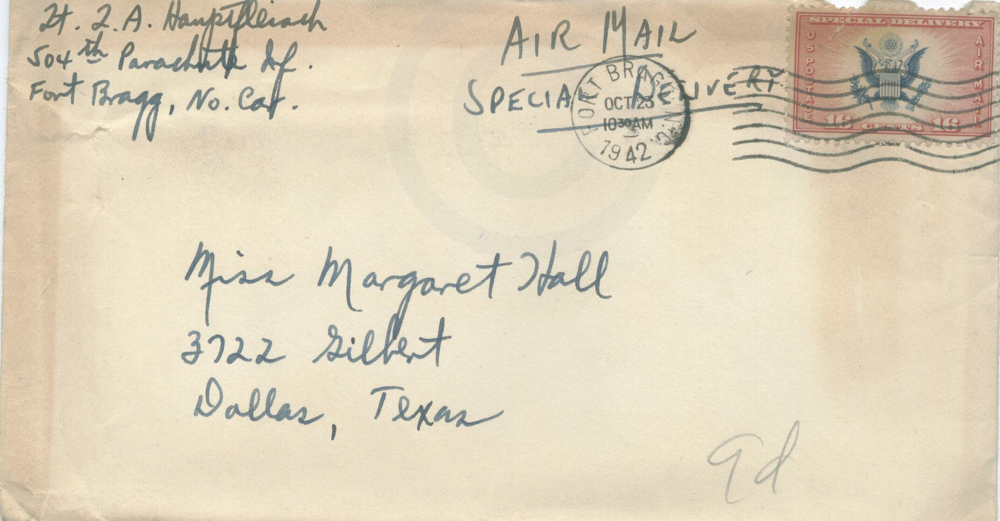 Lt. L. A. Hauptfleisch
504th Parachute Inf.
Fort Bragg, No. Car.
AIR MAIL
SPECIAL DELIVERY
FORT BRAGG
OCT 23
10 30 AM
1942
N.C.
SPECIAL DELIVERY
U S POSTAGE
AIR MAIL
16 CENTS 16
Miss Margaret Hall
3722 Gilbert
Dallas, Texas
9d